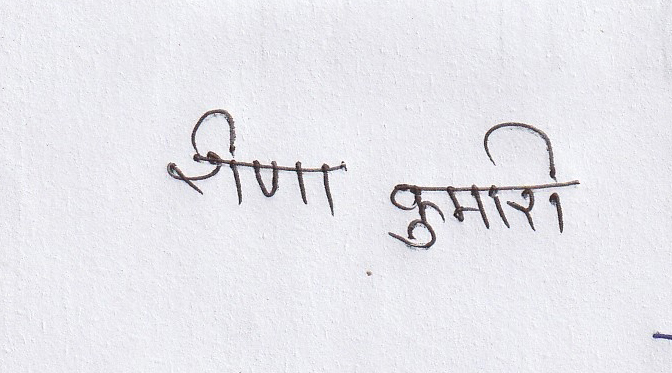 रीणा कुमारी